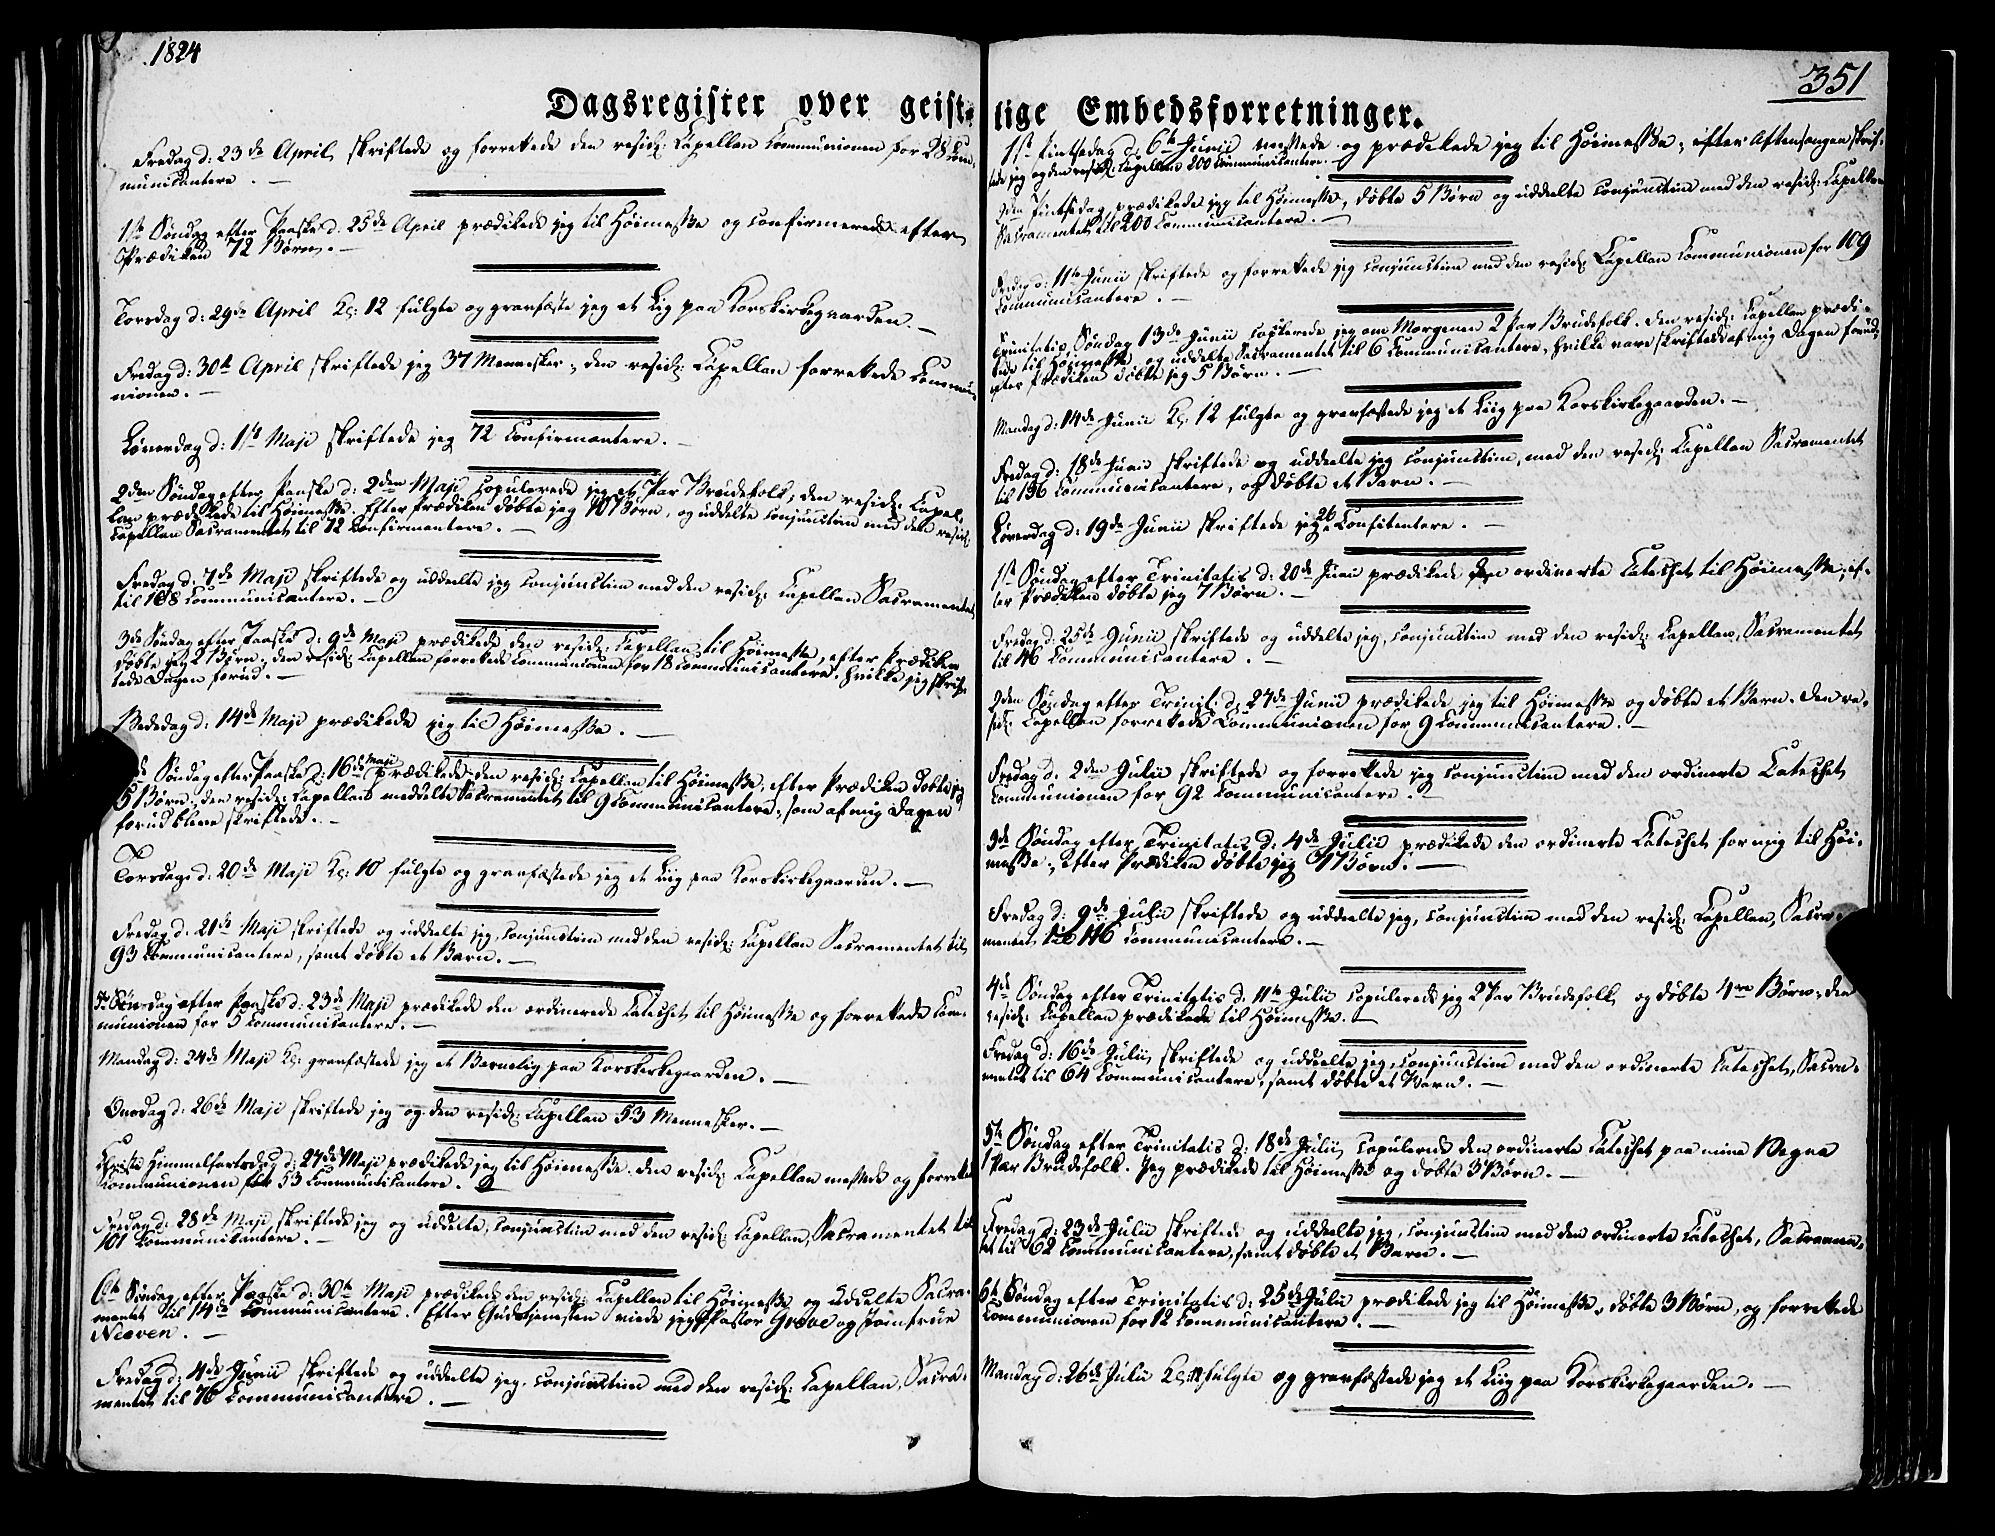 1824
351
Dagsregister over geistlige Embedsforretninger.
Fredag d: 23de April, skriftede og forrettede den resid: Capellan Communionen for 28 Com-
municantere. —
1ste Søndag efter Paaske d: 25de April prædikede jeg til Høimesse og confirmerede efter
Prædiken 72 Børn. —
Torsdag d: 29de April Kl: 12 fulgte og gravfæste jeg et Lig paa Korskirkegaarden. —
Fredag d: 30te April skriftede jeg 37 Mennesker, den resid: Capellan forrettede Commu-
nionen. —
Løverdag d: 1ste Maji skriftede jeg 72 Confirmantere. —
2den Søndag efter Paaske d: 2den Maji copulerede jeg et Par Brudefolk; den resid: Capel-
lan prædikede til Høimesse. Efter Prædiken døbte jeg 10 Børn, og uddelte conjunctim med den resid:
Capellan Sacramentet til 72 Confirmantere. —
Fredag d. 7de Maji skriftede og uddeelte jeg conjunctim med den resid: Capellan Sacramentet
til 108 Communicantere. —
3die Søndag efter Paaske d: 9de Maji prædikede den resid: Capellan til Høimesse, efter Prædiken
døbte jeg 2 Børn; den resid: Capellan forrettede Communionen for 18 Communicantere, hvilke jeg skrif-
tede Dagen forud. —
Bededag d: 14de Maji prædikede jeg til Høimesse. —
de Søndag efter Paaske d: 16de Maji prædikede den resid: Capellan til Høimesse, efter Prædiken døbte jeg
5 Børn; den resid: Capellan meddelte Sacramentet til 9 Communicantere, som af mig Dagen
forud bleve skriftede. —
Torsdag d: 20de Maji Kl: 10 fulgte og gravfæstede jeg et Liig paa Korskirkegaarden. —
Fredag d. 21de Maji skriftede og uddelte jeg, conjunctim med den resid: Capellan Sacramentet til
93 Communicantere, samt døbte et Barn. —
5te Søndag efter Paaske d: 23de Maji prædikede den ordinerede Catechet til Høimesse og forrettede Com-
munionen for 5 Communicantere. —
Mandag d: 24de Maji Kl: gravfæstede jeg et Barnelig paa Korskirkegaarden. —
Onsdag d: 26de Maji skriftede jeg og den resid: Capellan 53 Mennesker. —
Christi Himmelfartsdag d: 27de Maji prædikede jeg til Høimesse. den resid: Capellan messede og forrettede
Communionen for 53 Communicantere. —
Fredag d: 28de Maji, skriftede jeg og uddelte, conjunctim med den resid: Capellan, Sacramentet til
101 Communicantere. —
6te Søndag efter Paaske d: 30te Maji prædikede den resid: Capellan til Høimesse og uddelte Sacra-
mentet til 14 Communicantere. Efter Gudstjenesten viede jeg Pastor Greve og Jomfrue
Nieven. —
Fredag d: 4de Junii skriftede og uddelte jeg, conjunctim med den resid: Capellan, Sacra-
mentet til 76 Communicantere. —
1ste Pintsedag d: 6te Junii messede og prædikede jeg til Høimesse; efter Aftensangen skrif-
tede jeg og den resid: Capellan 200 Communicantere. —
2den Pintsedag prædikede jeg til Høimesse, døbte 5 Børn og uddelte conjunctim med den resid: Capellan
Sacramentet til 200 Communicantere. —
Fredag d: 11te Junii skriftede og forrettede jeg conjunctim med den resid: Capellan Communionen for 109
Communicantere. —
Trinitatis Søndag 13de Junii copulerede jeg om Morgenen 2 Par Brudefolk. Den resid: Capellan prædi-
kede til Høimesse og uddelte Sacramentet til 6 Communicantere, hvilke vare skriftede af mig Dagen forud;
efter Prædiken døbte jeg 5 Børn. —
Mandag d: 14de Junii Kl: 12 fulgte og gravfæstede jeg et Liig paa Korskirkegaarden. —
Fredag d: 18de Junii skriftede og uddeelte jeg conjunctim, med den resid: Capellan Sacramentet
til 136 Communicantere, og døbte et Barn. —
Løverdag d: 19de Junii skriftede jeg 26 Confitentere. —
1ste Søndag efter Trinitatis d: 20de Junii prædikede den ordinerte Catechet til Høimesse, ef-
ter Prædiken døbte jeg 7 Børn. —
Fredag d: 25de Junii skriftede og uddelte jeg, conjunctim med den resid: Capellan, Sacramentet
til 46 Communicantere. —
2den Søndag efter Trinit: d: 27de Junii prædikede jeg til Høimesse og døbte et Barn. Den re-
sid: Capellan forrettede Communionen for 9 Communicantere. —
Fredag d. 2den Julii skriftede og forrettede jeg conjunctim med den ordinerte Catechet
Communionen for 92 Communicantere. —
3die Søndag efter Trinitatis d. 4de Julii prædikede den ordinerte Catechet for mig til Høi-
messe; efter Prædiken døbte jeg 7 Børn. —
Fredag d: 9de Julii skriftede og uddeelte jeg, conjunctim med den resid: Capellan, Sacra-
mentet til 116 Communicantere. —
4de Søndag efter Trinitatis d. 11te Julii copulerede jeg 2 Par Brudefolk og døbte 4re Børn; den
resid: Capellan prædikede til Høimesse. —
Fredag d: 16de Julii, skriftede og uddeelte jeg, conjunctim med den ordinerte Catechet, Sacra-
mentet til 64 Communicantere, samt døbte et Barn. —
5te Søndag efter Trinitatis d: 18de Julii, copulerede den ordinerte Catechet paa mine Vegne
1 Par Brudefolk. Jeg prædikede til Høimesse og døbte 3 Børn. —
Fredag d: 23de Julii skriftede og uddeelte jeg, conjunctim med den ordinerte Catechet, Sacramen-
tet til 62 Communicantere, samt døbte et Barn. —
6te Søndag efter Trinitatis d: 25de Julii prædikede jeg til Høimesse, døbte 3 Børn, og forrettede
Communionen for 12 Communicantere. —
Mandag d: 26de Julii Kl: fulgte og gravfæstede jeg et Liig paa Korskirkegaarden. —